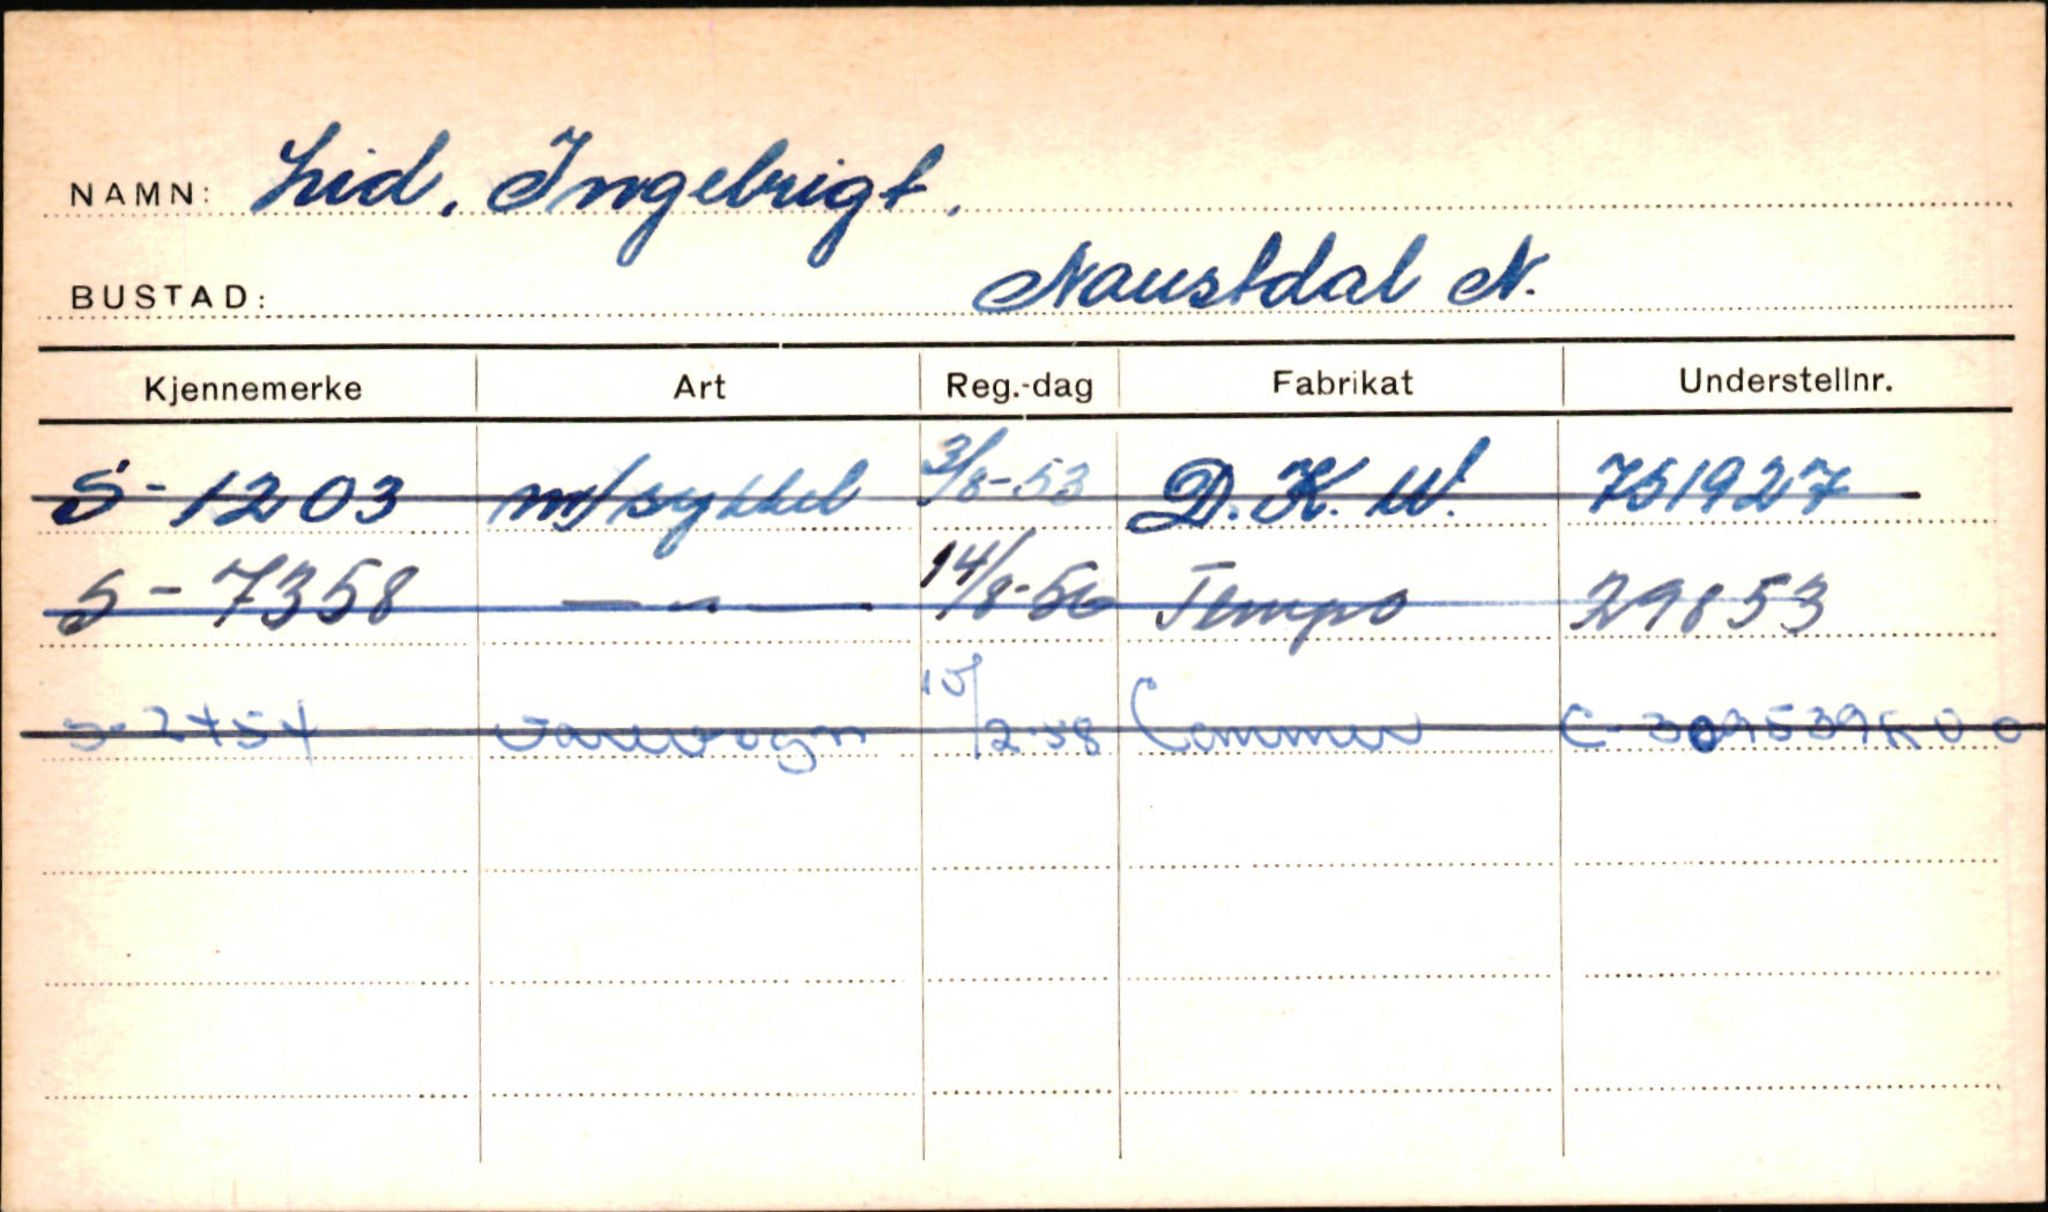 NAMN: Lid, Ingebrigt,
BUSTAD: Naustdal N.
Kjennemerke Art Reg.-dag Fabrikat Understellnr.
S-1203 m/sykkel 3/8-53 D.K.W. 751927
S-7358 —"— 14/8-56 Tempo 29853
S-2454 Varevogn 15/2-58 Commer